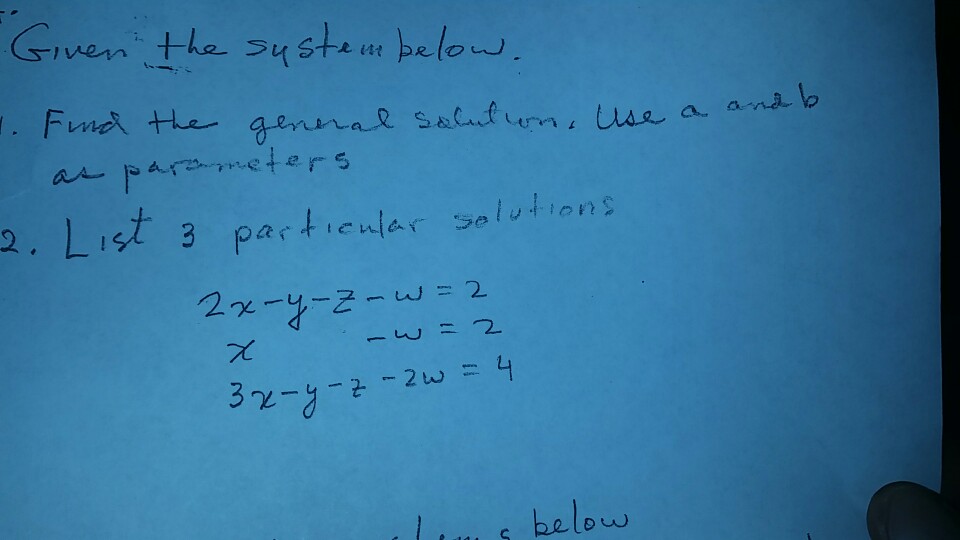 Given the system below.
1. Find the general solution. Use a and b
as parameters
2. List 3 particular solutions
2x-y-z-w = 2
x -w = 2
3x-y-z-2w = 4
below